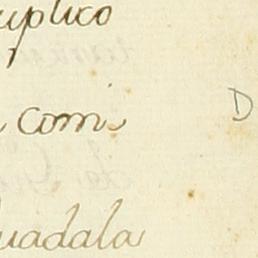 uplico
comi D
uadala